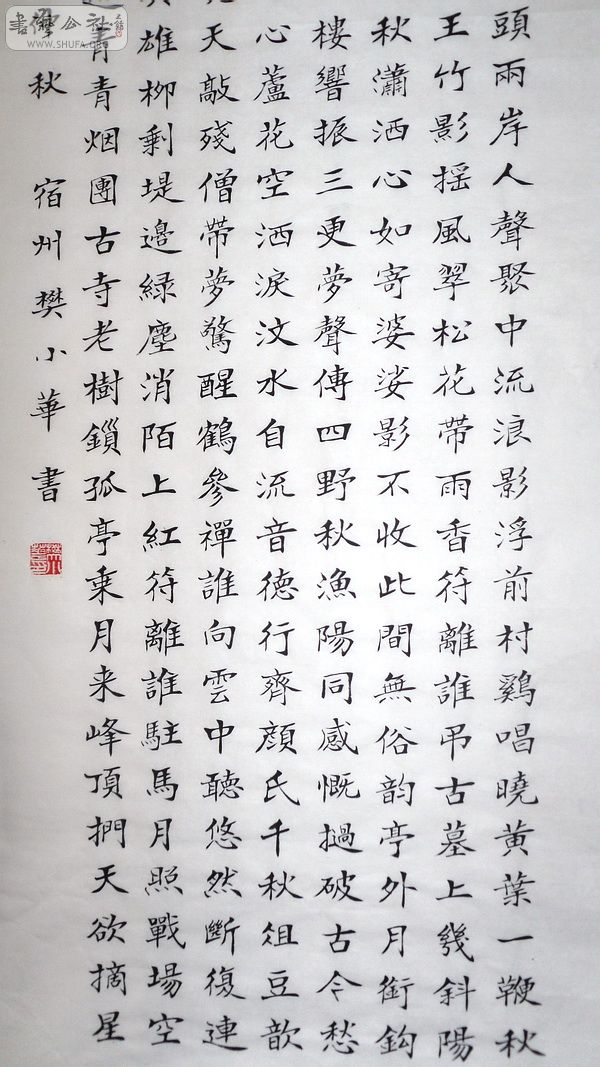 頭兩岸人聲聚中流浪影浮前村鷄唱曉黃葉一鞭秋
王竹影摇風翠松花帶雨香符離誰吊古墓上幾斜陽
秋瀟洒心如寄婆娑影不收此間無俗韵亭外月銜鈎
樓響振三更夢聲傳四野秋漁陽同感慨撾破古今愁
心蘆花空洒淚汶水自流音德行齊顏氏千秋俎豆歆
天敲殘僧帶夢驚醒鶴參禪誰向雲中聽悠然斷復連
雄柳剩堤邊綠塵消陌上紅符離誰駐馬月照戰場空
青青烟團古寺老樹鎖孤亭乗月来峰頂捫天欲摘星
秋 宿州樊小華書
書法公社
WWW.SHUFA.ORG